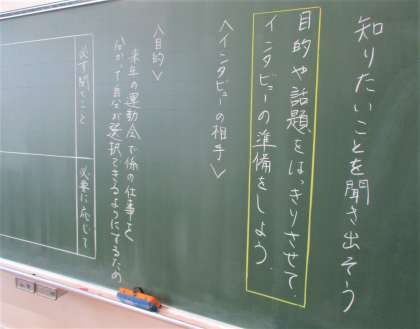 知りたいことを聞き出そう
目的や話題をはっきりさせて、
インタビューの準備をしよう。
〈インタビューの相手〉
〈目的〉
来年の運動会で係の仕事を
分かって自分が選択できるようにするため
必ず聞くこと
必要に応じて